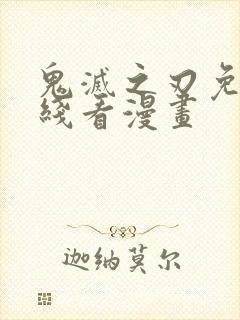 鬼滅之刃免
綫看漫畫
迦纳莫尔